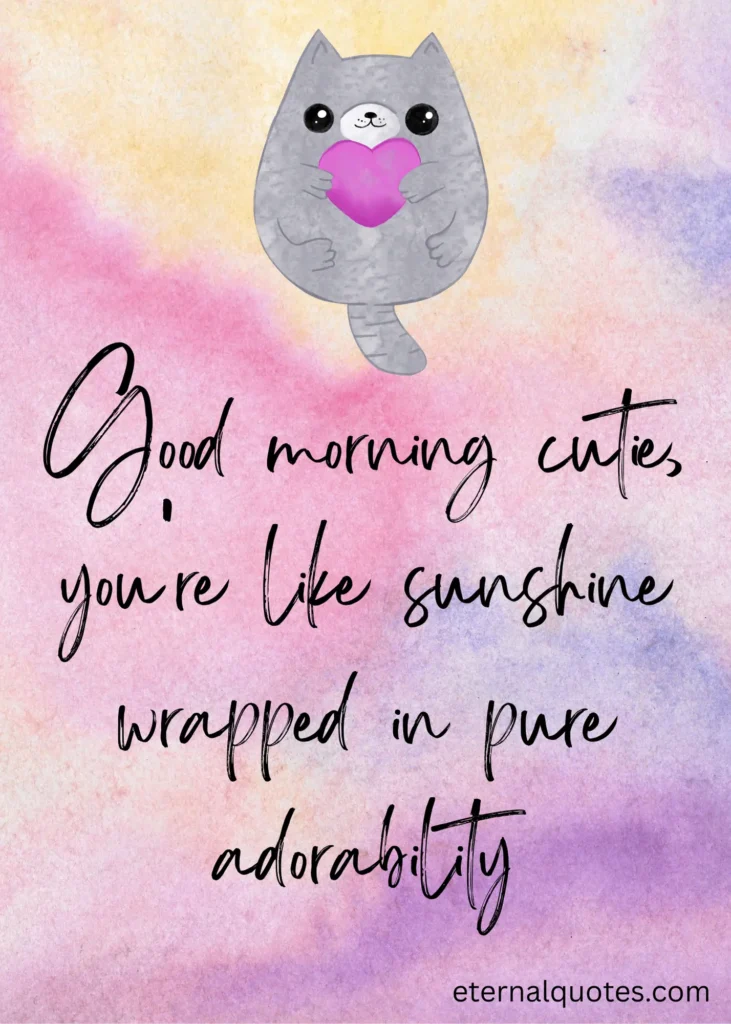 Good morning cutie,
you're like sunshine
wrapped in pure
adorability
eternalquotes.com